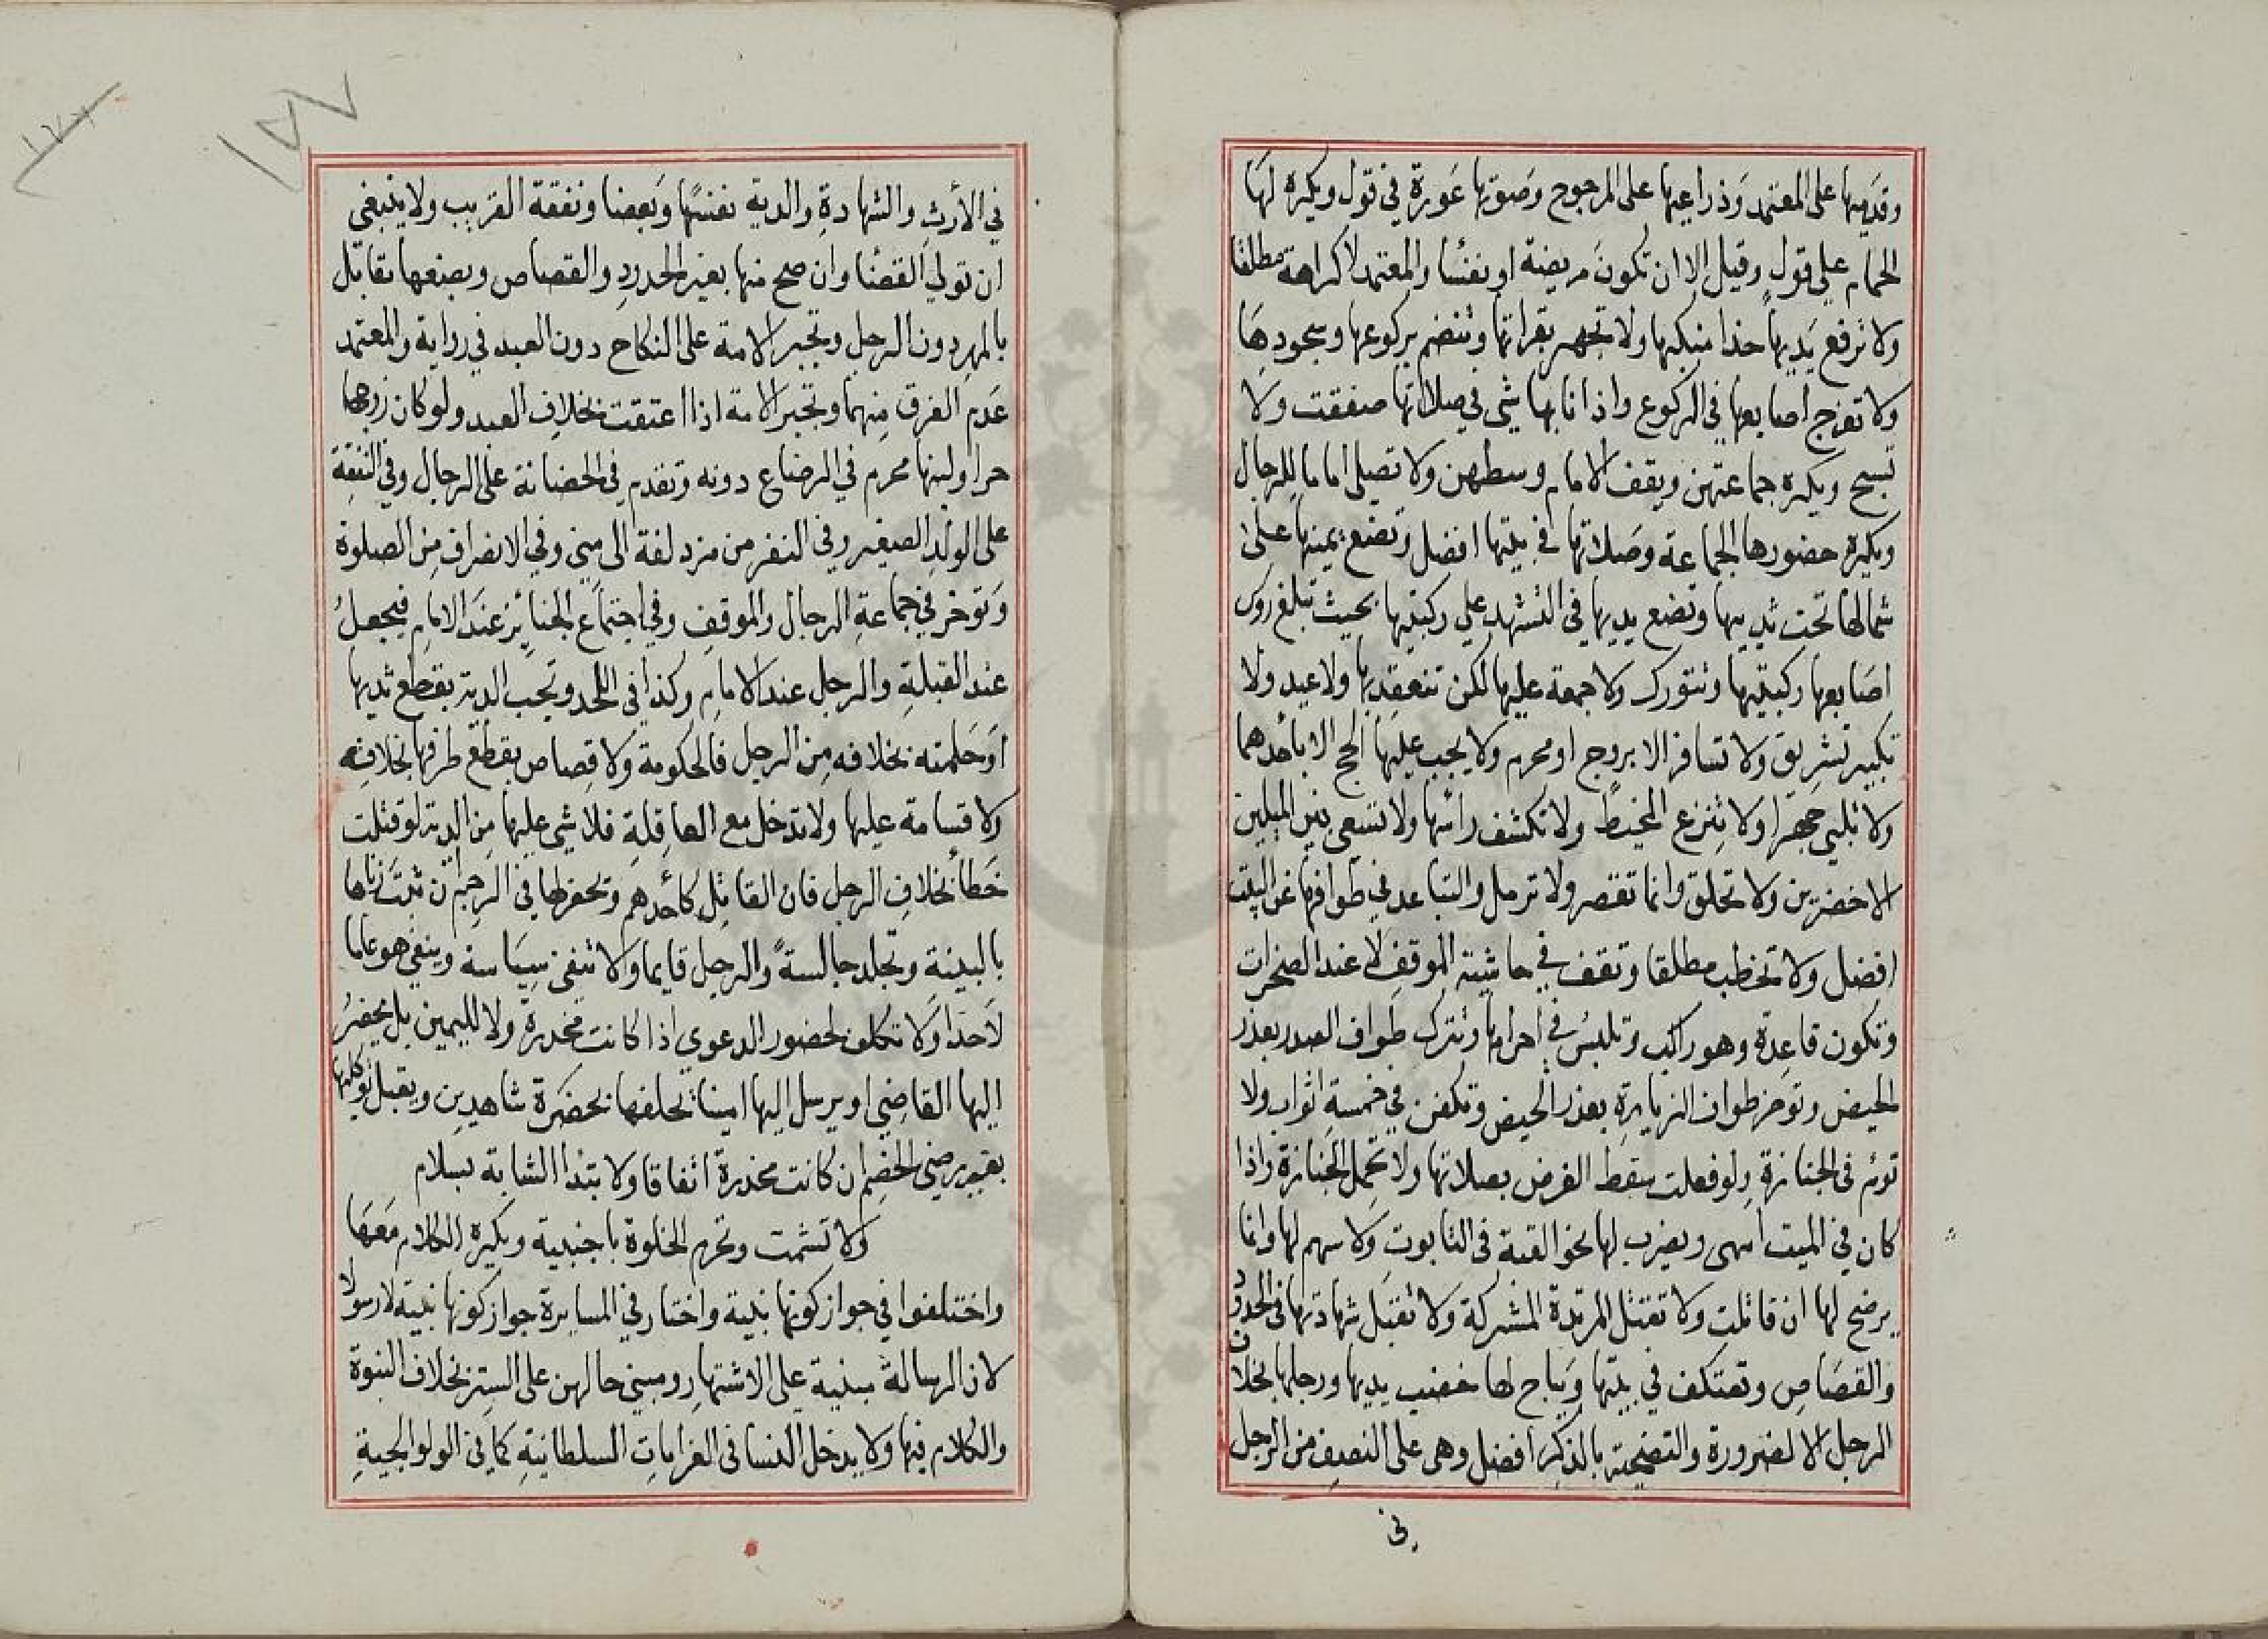 وقدميها على المعتمد وذراعيها على المرجوح وصوتها عورة في قول ويكره لها
الحمام على قول وقيل الا ان تكون مريضة او نفسا والمعتمد لا كراهة مطلقا
ولا ترفع يديها حذا منكبها ولا تجهر بقراتها وتنضم بركوعها وسجودها
ولا تفرج اصابعها في الركوع واذا نابها شي في صلاتها صفقت ولا
تسبح ويكره جماعتهن ويقف الامام وسطهن ولا تصلي اماما للرجال
ويكره حضورها الجماعة وصلاتها في بيتها افضل وتضع يمينها على
شمالها تحت ثدييها وتضع يديها في التشهد على ركبتيها بحيث تبلغ روس
اصابعها ركبتيها وتتورك ولا جمعة عليها لكن تنعقد بها ولا عيد ولا
تكبير تشريق ولا تسافر الا بزوج او محرم ولا يجب عليها الحج الا باحدهما
ولا تلبي جهرا ولا تنزع المخيط ولا تكشف راسها ولا تسعى بين الميلين
الاخضرين ولا تحلق وانما تقصر ولا ترمل والتباعد في طوافها عن البيت
افضل ولا تخطب مطلقا وتقف في حاشية الموقف لا عند الصخرات
وتكون قاعدة وهو راكب وتلبس في احرامها وتترك طواف الصدر بعذر
الحيض وتوخر طواف الزيارة بعذر الحيض وتكفن في خمسة اثواب ولا
توم في الجنازة ولو فعلت سقط الفرض بصلاتها ولا تحمل الجنازة واذا
كان في الميت اسهى ويضرب لها نحو القبة في التابوت ولا سهم لها وانما
يرضخ لها ان قاتلت ولا تقتل المرتدة المشركة ولا تقبل شهادتها في الحدود
والقصاص وتعتكف في بيتها ويباح لها خضب يديها ورجليها بخلاف
الرجل الا لضرورة والتضحية بالذكر افضل وهي على النصف من الرجل
في
١٨٧
في الأرث والشهادة والدية نفسا وبعضا ونفقة القريب ولا ينبغي
ان تولي القضا وان صح منها بغير الحدود والقصاص وبضعها يقابل
بالمهر دون الرجل وتجبر الامة على النكاح دون العبد في رواية والمعتمد
عدم الفرق منهما وتخير الامة اذا اعتقت بخلاف العبد ولو كان زوجها
حرا ولبنها محرم في الرضاع دونه وتقدم في الحضانة على الرجال وفي النفقة
على الولد الصغير وفي النفر من مزدلفة الى منى وفي الانصراف من الصلوة
وتوخر في جماعة الرجال والموقف وفي اجتماع الجنائز عند الامام فيجعل
عند القبلة والرجل عند الامام وكذا في اللحد وتجب الدية بقطع ثديها
او حلمته بخلافه من الرجل فالحكومة ولا قصاص بقطع طرفها بخلافه
ولا قسامة عليها ولا تدخل مع العاقلة فلا شي عليها من الدية لو قتلت
خطأ بخلاف الرجل فان القاتل كأحدهم وتحفر لها في الرجم ان ثبت زناها
بالبينة وتجلد جالسة والرجل قايما ولا تنفى سياسة وينفى هو عاما
لا حدا ولا تكلف لحضور الدعوي اذا كانت مخدرة ولا لليمين بل يحضر
اليها القاضي او يرسل اليها امينا تحلفها بحضرة شاهدين ويقبل توكلها
بغير رضى الخصم ان كانت مخدرة اتفاقا ولا يبتدا الشابة بسلام
ولا تشمت وتحرم الخلوة باجنبية ويكره الكلام معها
واختلفوا في جواز كونها نبية واختار في المسايرة جواز كونها نبية لا رسولا
لان الرسالة مبنية على الاشتهار ومبنى حالهن على الستر بخلاف النبوة
والكلام فيها ولا يدخل النسا في الغرامات السلطانية كما في الولوالجية